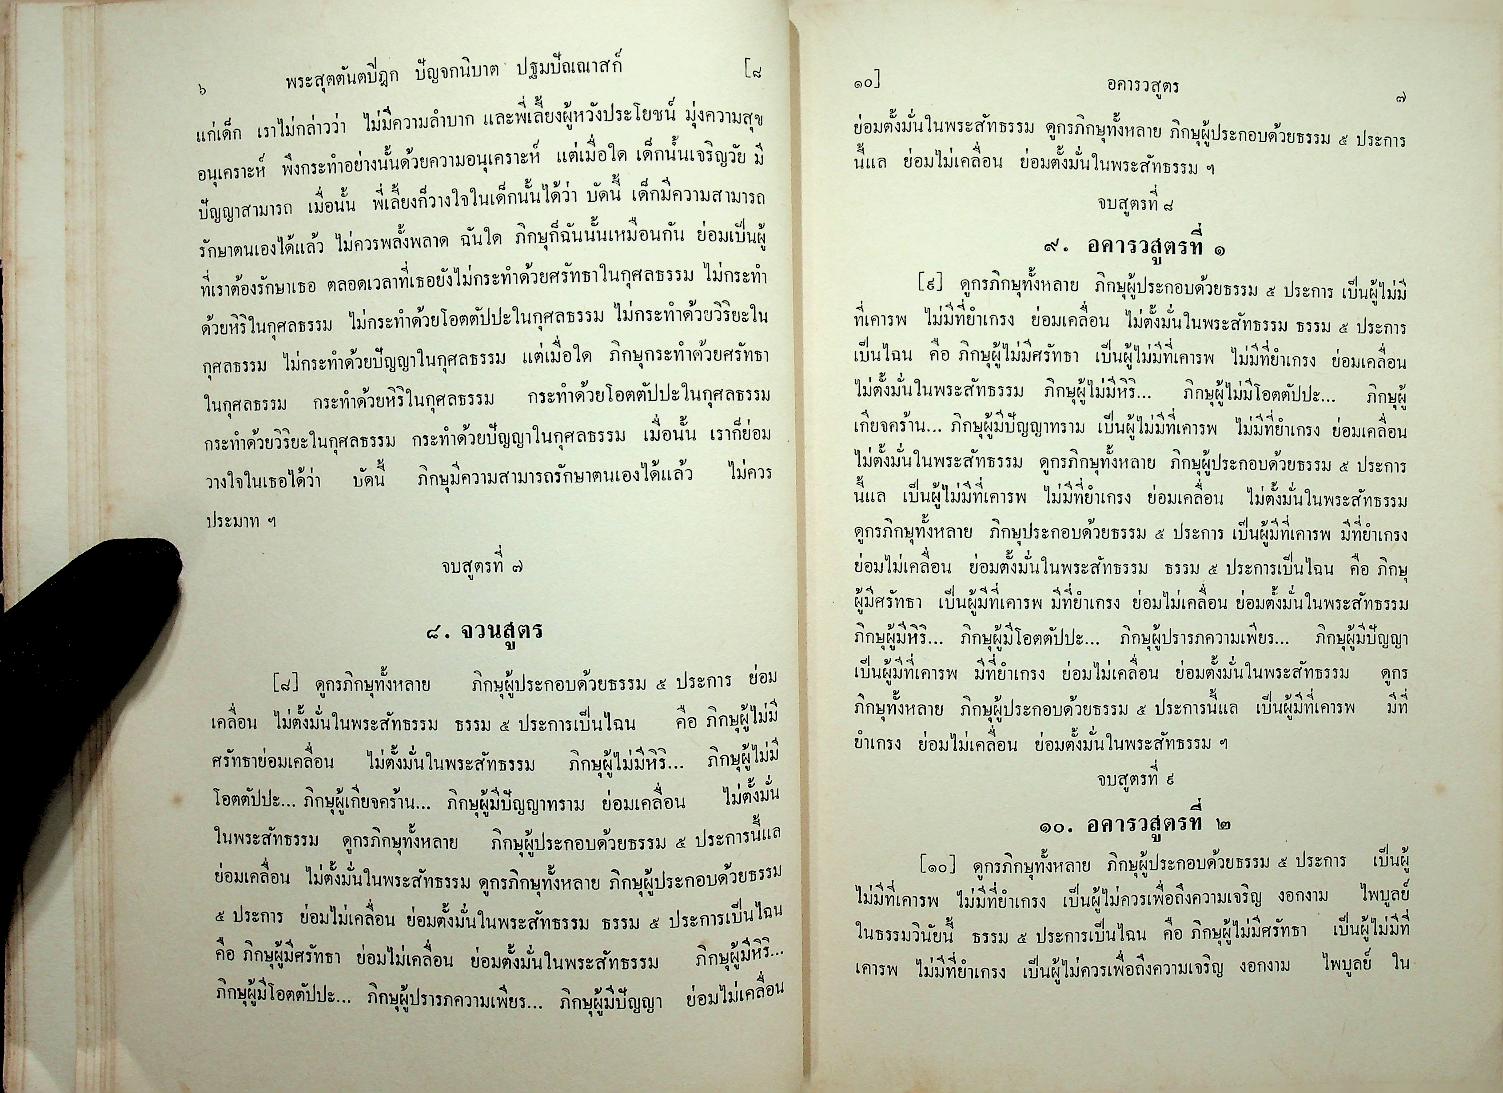 ๖ พระสุตตันตปิฎก ปัญจกนิบาต ปฐมปัณณาสก์ [๘
แก่เด็ก เราไม่กล่าวว่า ไม่มีความลำบาก และพี่เลี้ยงผู้หวังประโยชน์ มุ่งความสุข
อนุเคราะห์ พึงกระทำอย่างนั้นด้วยความอนุเคราะห์ แต่เมื่อใด เด็กนั้นเจริญวัย มี
ปัญญาสามารถ เมื่อนั้น พี่เลี้ยงก็วางใจในเด็กนั้นได้ว่า บัดนี้ เด็กมีความสามารถ
รักษาตนเองได้แล้ว ไม่ควรพลั้งพลาด ฉันใด ภิกษุก็ฉันนั้นเหมือนกัน ย่อมเป็นผู้
ที่เราต้องรักษาเธอ ตลอดเวลาที่เธอยังไม่กระทำด้วยศรัทธาในกุศลธรรม ไม่กระทำ
ด้วยหิริในกุศลธรรม ไม่กระทำด้วยโอตตัปปะในกุศลธรรม ไม่กระทำด้วยวิริยะใน
กุศลธรรม ไม่กระทำด้วยปัญญาในกุศลธรรม แต่เมื่อใด ภิกษุกระทำด้วยศรัทธา
ในกุศลธรรม กระทำด้วยหิริในกุศลธรรม กระทำด้วยโอตตัปปะในกุศลธรรม
กระทำด้วยวิริยะในกุศลธรรม กระทำด้วยปัญญาในกุศลธรรม เมื่อนั้น เราก็ย่อม
วางใจในเธอได้ว่า บัดนี้ ภิกษุมีความสามารถรักษาตนเองได้แล้ว ไม่ควร
ประมาท ฯ
จบสูตรที่ ๗
๘. จวนสูตร
[๘] ดูกรภิกษุทั้งหลาย ภิกษุผู้ประกอบด้วยธรรม ๕ ประการ ย่อม
เคลื่อน ไม่ตั้งมั่นในพระสัทธรรม ธรรม ๕ ประการเป็นไฉน คือ ภิกษุผู้ไม่มี
ศรัทธาย่อมเคลื่อน ไม่ตั้งมั่นในพระสัทธรรม ภิกษุผู้ไม่มีหิริ... ภิกษุผู้ไม่มี
โอตตัปปะ... ภิกษุผู้เกียจคร้าน... ภิกษุผู้มีปัญญาทราม ย่อมเคลื่อน ไม่ตั้งมั่น
ในพระสัทธรรม ดูกรภิกษุทั้งหลาย ภิกษุผู้ประกอบด้วยธรรม ๕ ประการนี้แล
ย่อมเคลื่อน ไม่ตั้งมั่นในพระสัทธรรม ดูกรภิกษุทั้งหลาย ภิกษุผู้ประกอบด้วยธรรม
๕ ประการ ย่อมไม่เคลื่อน ย่อมตั้งมั่นในพระสัทธรรม ธรรม ๕ ประการเป็นไฉน
คือ ภิกษุผู้มีศรัทธา ย่อมไม่เคลื่อน ย่อมตั้งมั่นในพระสัทธรรม ภิกษุผู้มีหิริ...
ภิกษุผู้มีโอตตัปปะ... ภิกษุผู้ปรารภความเพียร... ภิกษุผู้มีปัญญา ย่อมไม่เคลื่อน
๑๐] อคารวสูตร ๗
ย่อมตั้งมั่นในพระสัทธรรม ดูกรภิกษุทั้งหลาย ภิกษุผู้ประกอบด้วยธรรม ๕ ประการ
นี้แล ย่อมไม่เคลื่อน ย่อมตั้งมั่นในพระสัทธรรม ฯ
จบสูตรที่ ๘
๙. อคารวสูตรที่ ๑
[๙] ดูกรภิกษุทั้งหลาย ภิกษุผู้ประกอบด้วยธรรม ๕ ประการ เป็นผู้ไม่มี
ที่เคารพ ไม่มีที่ยำเกรง ย่อมเคลื่อน ไม่ตั้งมั่นในพระสัทธรรม ธรรม ๕ ประการ
เป็นไฉน คือ ภิกษุผู้ไม่มีศรัทธา เป็นผู้ไม่มีที่เคารพ ไม่มีที่ยำเกรง ย่อมเคลื่อน
ไม่ตั้งมั่นในพระสัทธรรม ภิกษุผู้ไม่มีหิริ... ภิกษุผู้ไม่มีโอตตัปปะ... ภิกษุผู้
เกียจคร้าน... ภิกษุผู้มีปัญญาทราม เป็นผู้ไม่มีที่เคารพ ไม่มีที่ยำเกรง ย่อมเคลื่อน
ไม่ตั้งมั่นในพระสัทธรรม ดูกรภิกษุทั้งหลาย ภิกษุผู้ประกอบด้วยธรรม ๕ ประการ
นี้แล เป็นผู้ไม่มีที่เคารพ ไม่มีที่ยำเกรง ย่อมเคลื่อน ไม่ตั้งมั่นในพระสัทธรรม
ดูกรภิกษุทั้งหลาย ภิกษุประกอบด้วยธรรม ๕ ประการ เป็นผู้มีที่เคารพ มีที่ยำเกรง
ย่อมไม่เคลื่อน ย่อมตั้งมั่นในพระสัทธรรม ธรรม ๕ ประการเป็นไฉน คือ ภิกษุ
ผู้มีศรัทธา เป็นผู้มีที่เคารพ มีที่ยำเกรง ย่อมไม่เคลื่อน ย่อมตั้งมั่นในพระสัทธรรม
ภิกษุผู้มีหิริ... ภิกษุผู้มีโอตตัปปะ... ภิกษุผู้ปรารภความเพียร... ภิกษุผู้มีปัญญา
เป็นผู้มีที่เคารพ มีที่ยำเกรง ย่อมไม่เคลื่อน ย่อมตั้งมั่นในพระสัทธรรม ดูกร
ภิกษุทั้งหลาย ภิกษุผู้ประกอบด้วยธรรม ๕ ประการนี้แล เป็นผู้มีที่เคารพ มีที่
ยำเกรง ย่อมไม่เคลื่อน ย่อมตั้งมั่นในพระสัทธรรม ฯ
จบสูตรที่ ๙
๑๐. อคารวสูตรที่ ๒
[๑๐] ดูกรภิกษุทั้งหลาย ภิกษุผู้ประกอบด้วยธรรม ๕ ประการ เป็นผู้
ไม่มีที่เคารพ ไม่มีที่ยำเกรง เป็นผู้ไม่ควรเพื่อถึงความเจริญ งอกงาม ไพบูลย์
ในธรรมวินัยนี้ ธรรม ๕ ประการเป็นไฉน คือ ภิกษุผู้ไม่มีศรัทธา เป็นผู้ไม่มีที่
เคารพ ไม่มีที่ยำเกรง เป็นผู้ไม่ควรเพื่อถึงความเจริญ งอกงาม ไพบูลย์ ใน